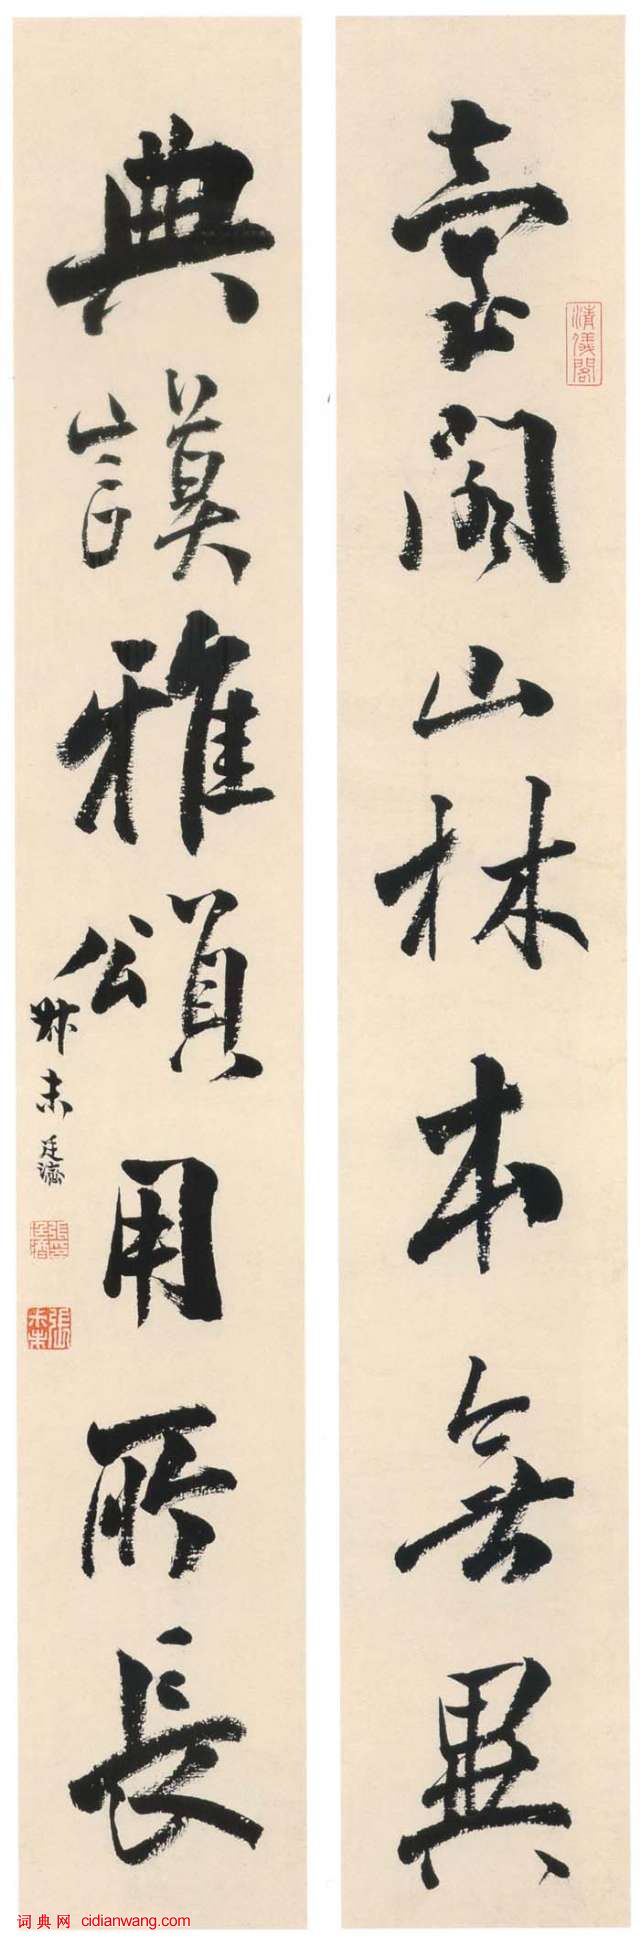 臺閣山林本無異
清儀閣
典謨雅頌用所長
叔未廷濟
張廷濟印
張叔未
词典网 cidianwang.com